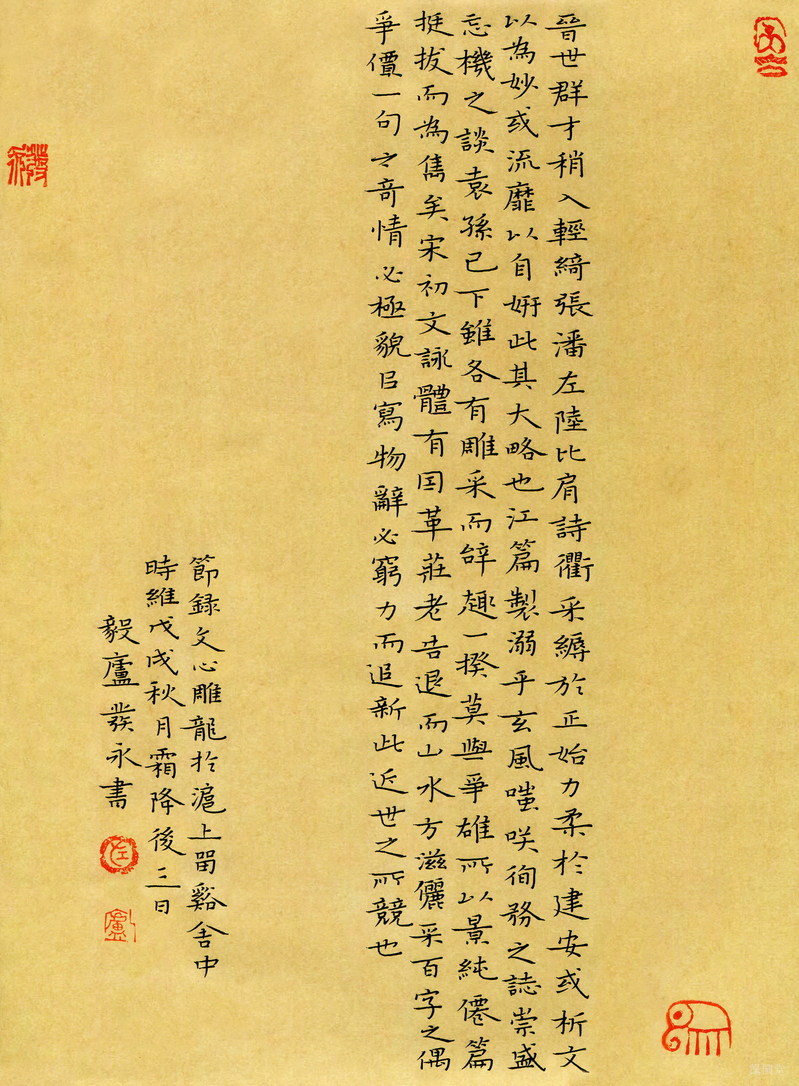 晉世群才稍入輕綺張潘左陸比肩詩衢采縟於正始力柔於建安或析文
以為妙或流靡以自妍此其大略也江篇製溺乎玄風嗤咲徇務之誌崇盛
忘機之談袁孫已下雖各有雕采而辝趣一揆莫與爭雄所以景純僊篇
挺拔而為雋矣宋初文詠體有因革莊老告退而山水方滋儷采百字之偶
爭價一句之竒情必極貌㠯寫物辭必窮力而追新此近世之所競也
節録文心雕龍於滬上留谿舍中
時維戊戌秋月霜降後三日
毅廬發永書